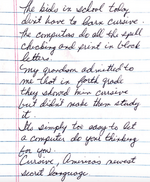 The kids in school today
don't have to learn cursive.
The computers do all the spell
checking and print in block
letters.
My grandson admitted to
me that in forth grade
they showed him cursive
but didn't make them study
it.
Its simply too easy to let
a computer do you thinking
for you.
Cursive, Americas newest
secret language.